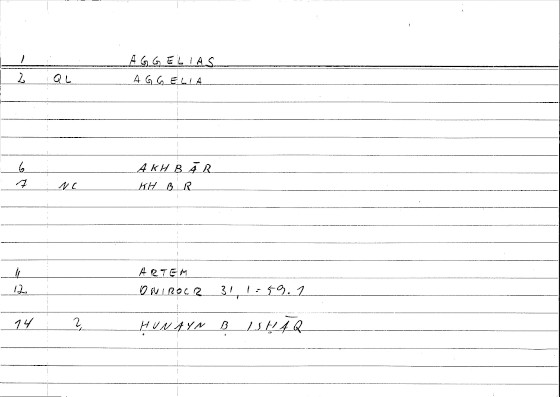 1 AGGELIAS
2 QL AGGELIA
6 AKHBĀR
7 NC KHBR
11 ARTEM
12 ONIROCR 31,1 = 59.1
14 2, ḤUNAYN B ISḤĀQ